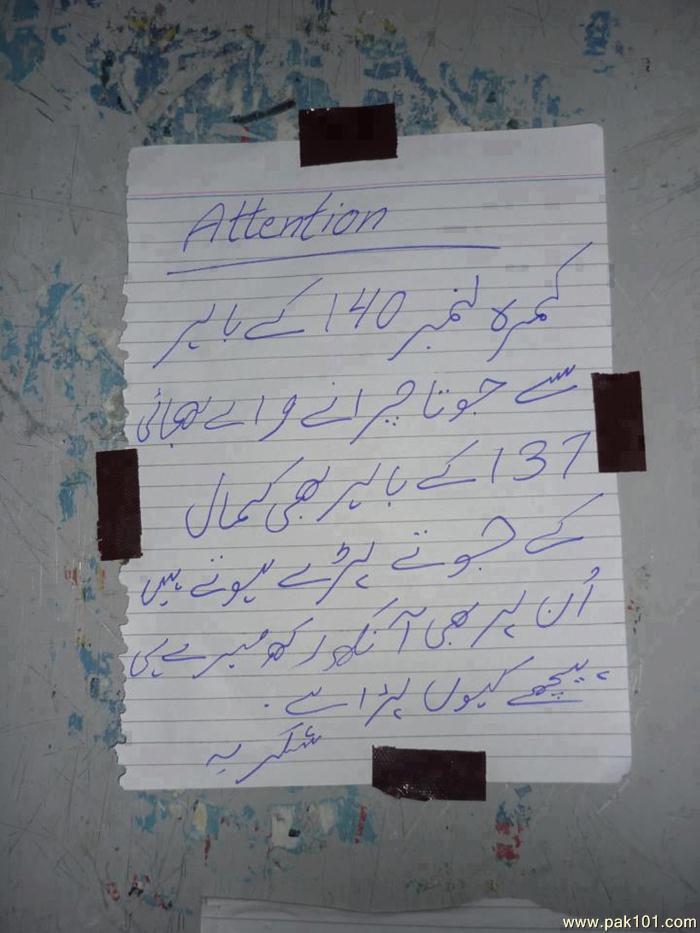 Attention
کمرہ نمبر 140 کے باہر
سے جوتا چرانے والے بھائی
137 کے باہر بھی کمال
کے جوتے پڑے ہوتے ہیں
اُن پر بھی آنکھ رکھ میرے ہی
پیچھے کیوں پڑا ہے۔
شکریہ
www.pak101.com